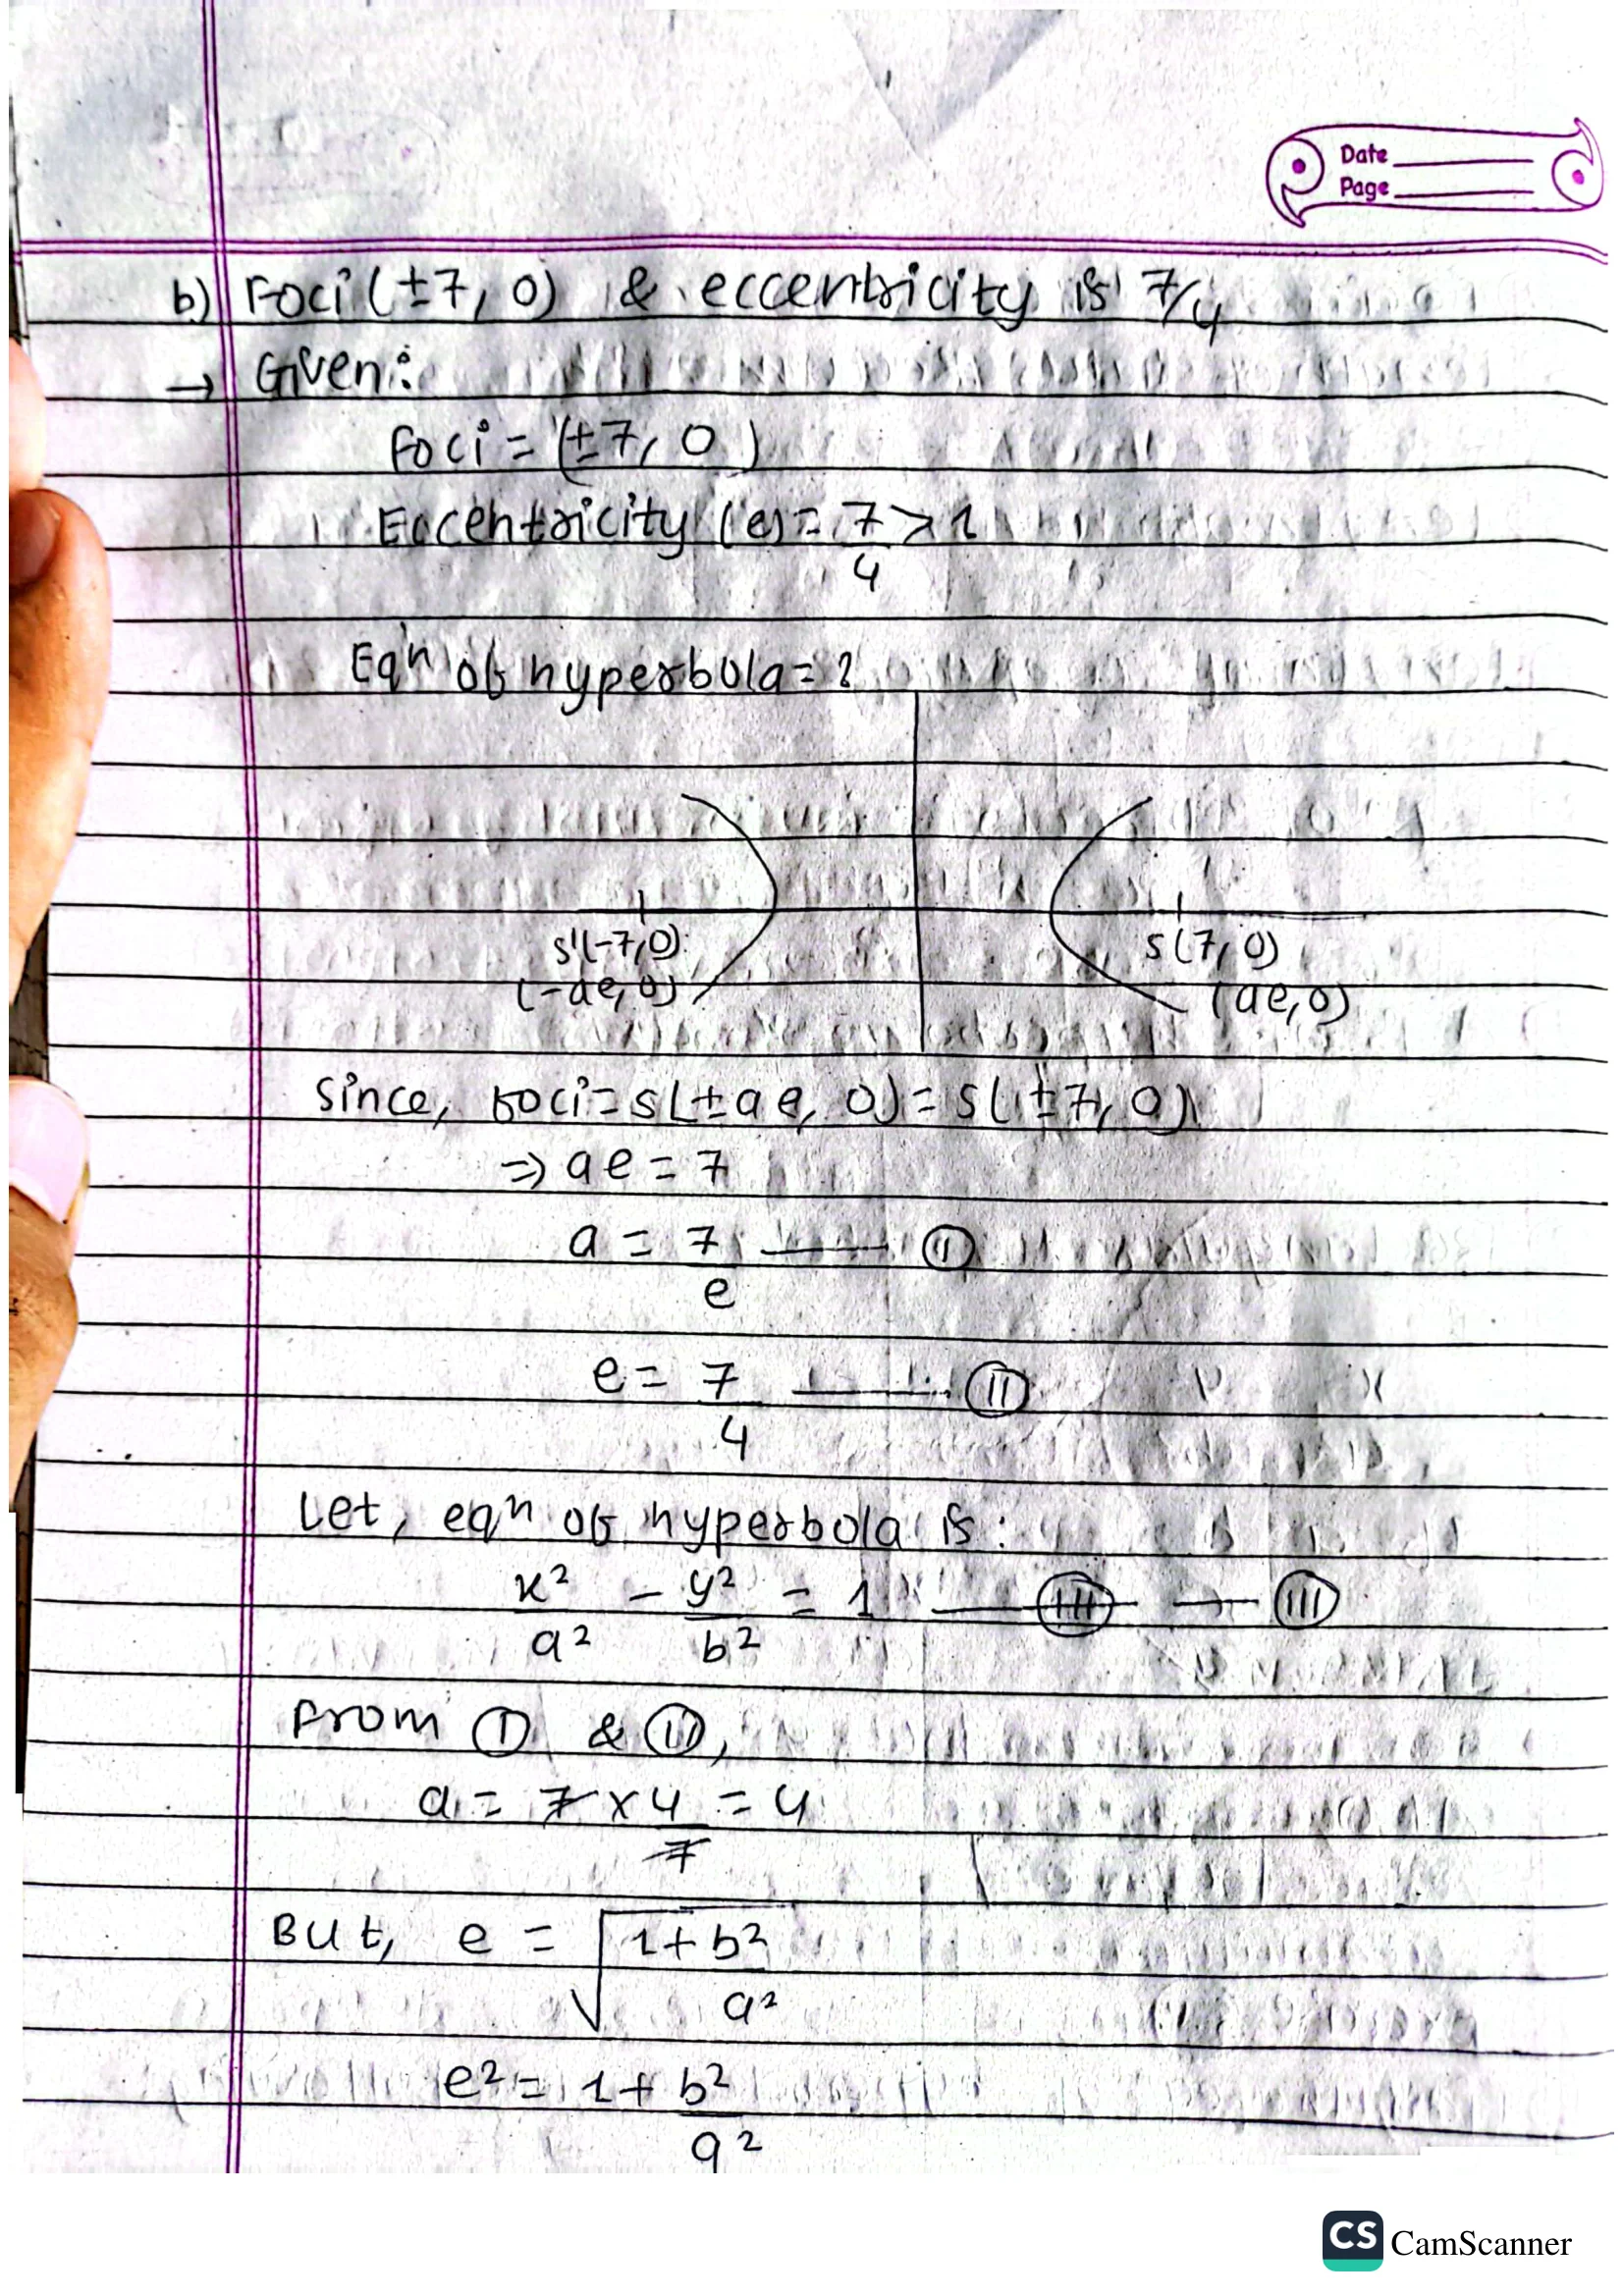 Date
Page
b) Foci (±7, 0) & eccentricity is 7/4
→ Given:
Foci = (±7, 0)
Eccentricity (e) = 7/4 > 1
Eqn of hyperbola = ?
S'(-7,0) S(7, 0)
(-ae, 0) (ae, 0)
Since, foci = S(±ae, 0) = S(±7, 0)
⇒ ae = 7
a = 7/e —— (I)
e = 7/4 —— (II)
Let, eqn of hyperbola is:
x²/a² - y²/b² = 1 —— (III) — (III)
From (I) & (II),
a = 7 × 4/7 = 4
But, e = √(1 + b²/a²)
e² = 1 + b²/a²
CS CamScanner